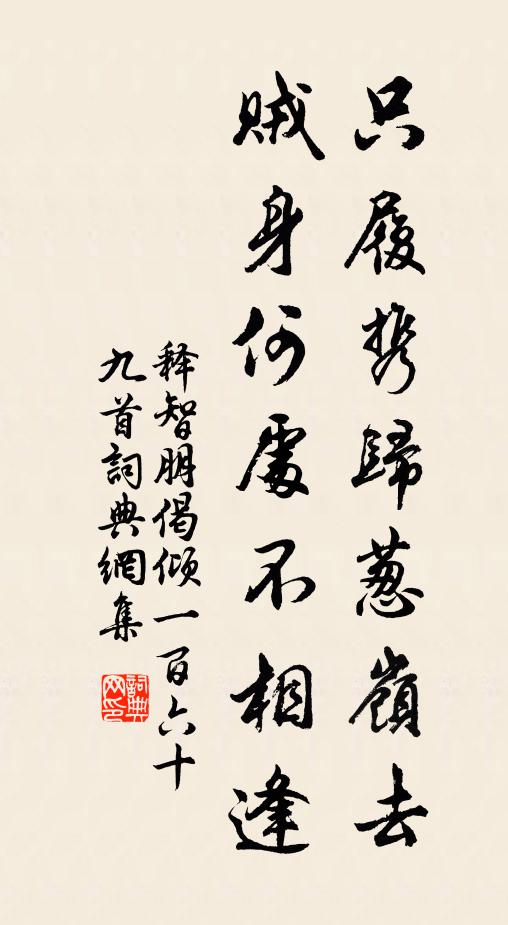 只履携歸葱嶺去
賊身何處不相逢
释智朋偈倾一百六十
九首詞典網集
詞典网印